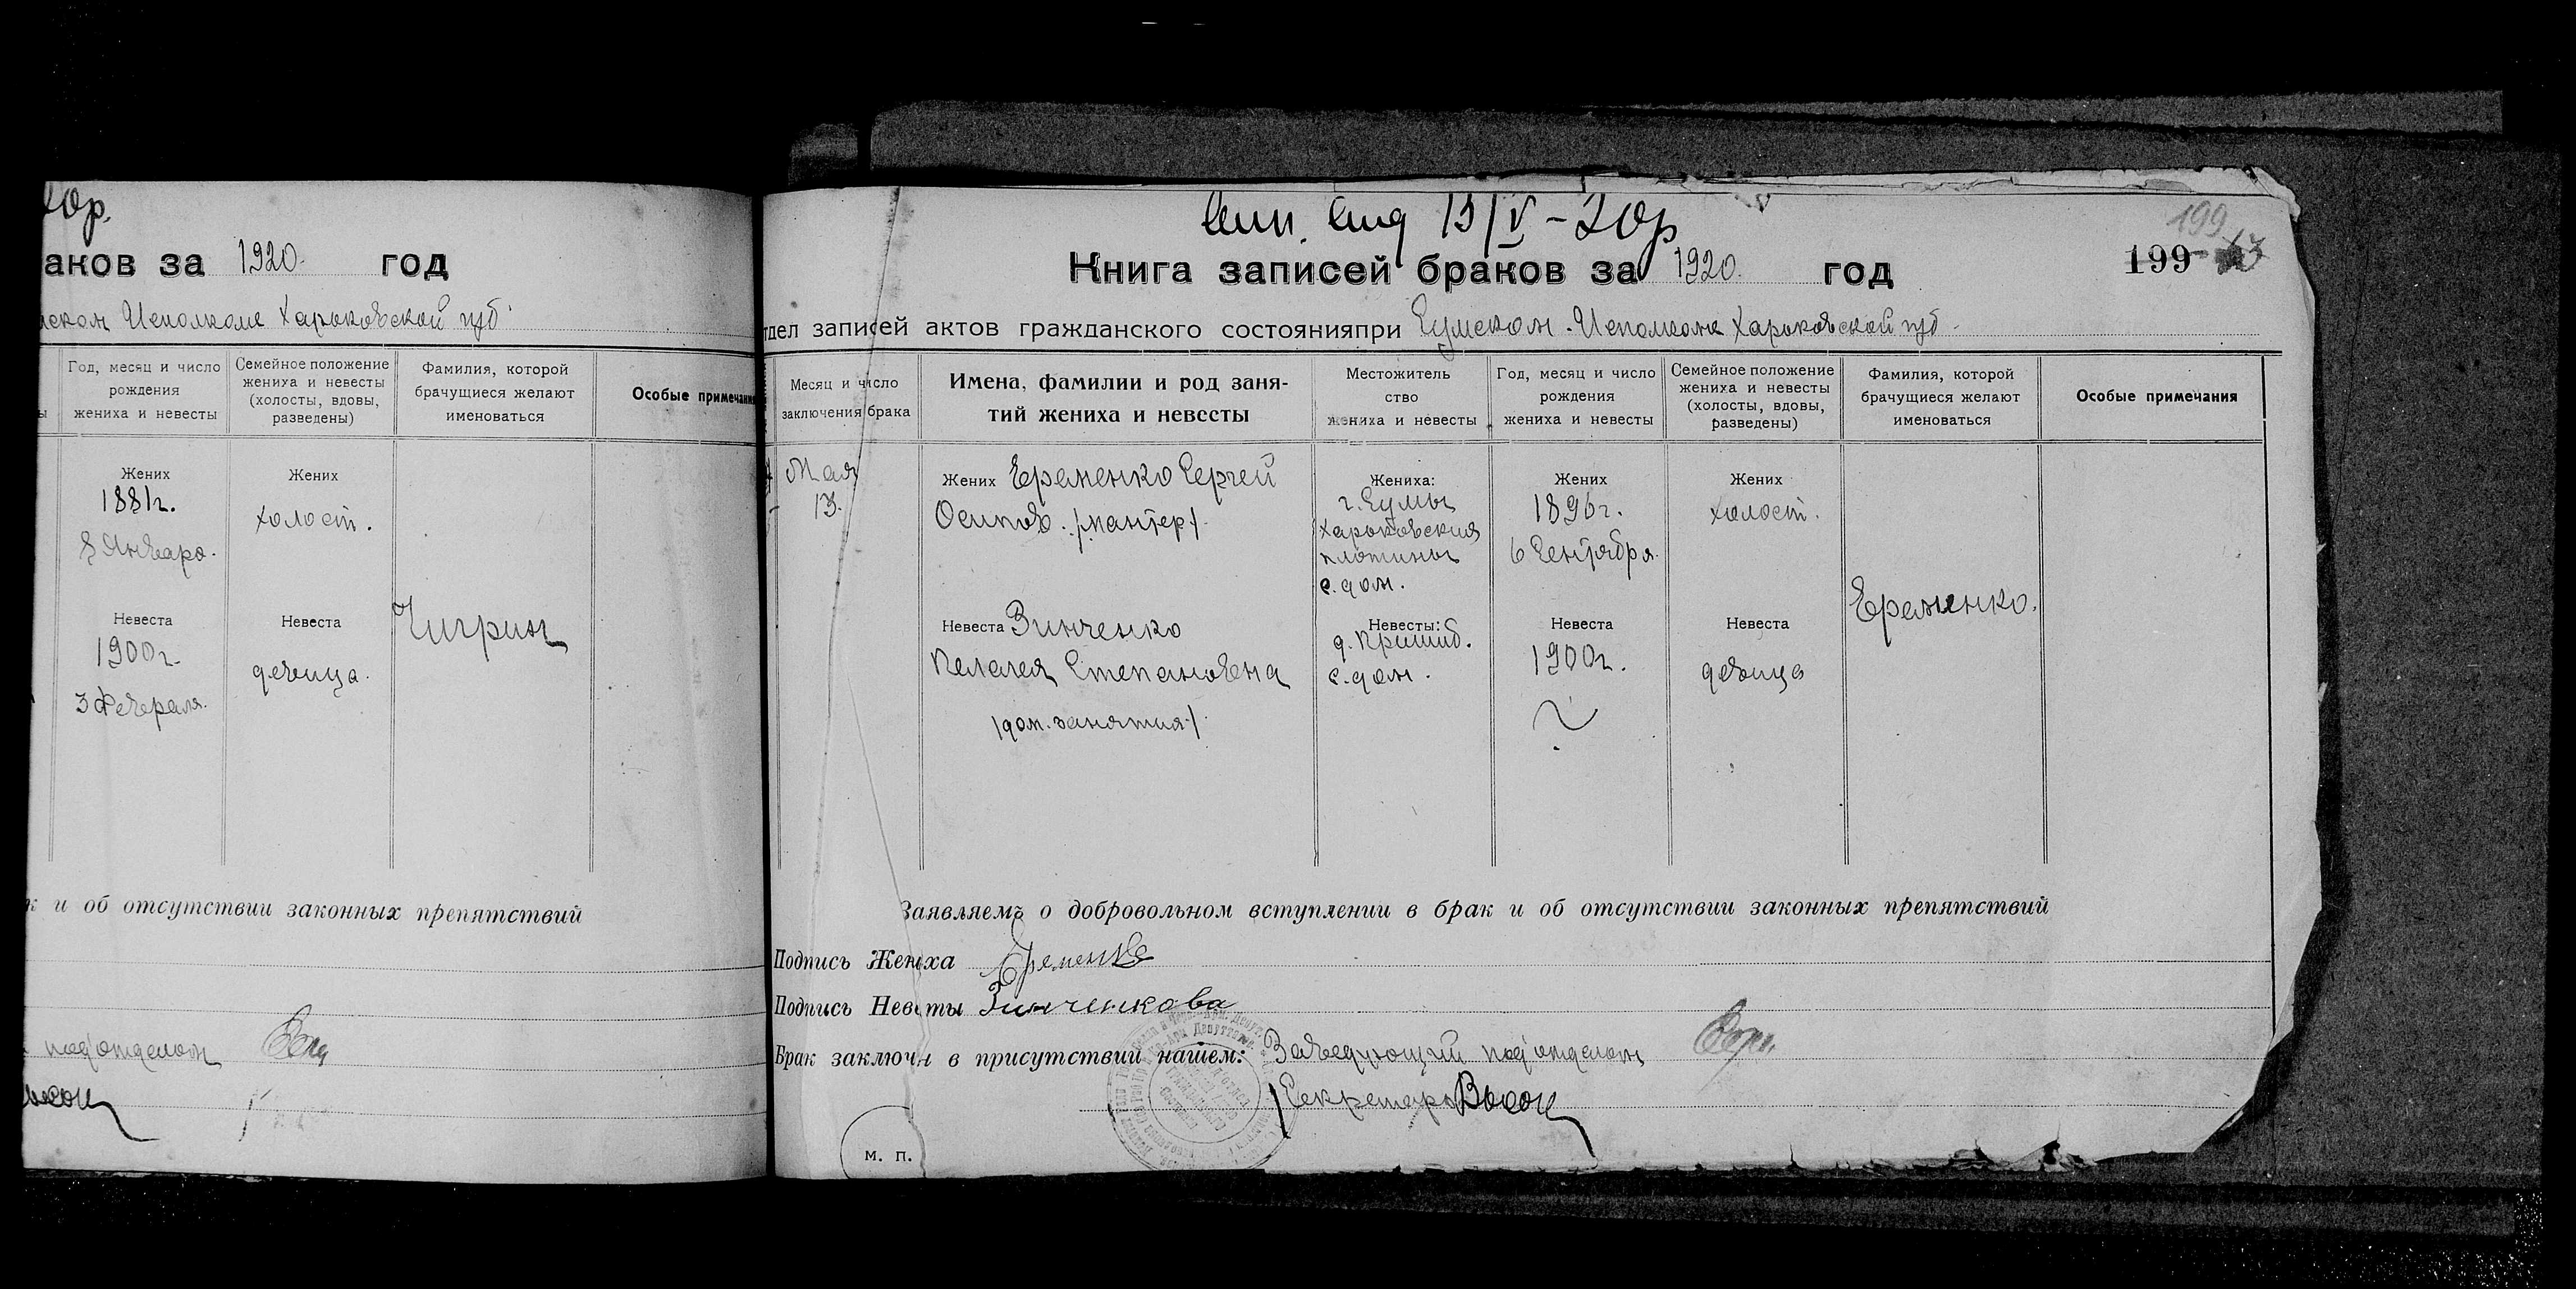 аков за 1920 год
Исполкоме Харьковской губ
Год, месяц и число рождения жениха и невесты
Семейное положение жениха и невесты (холосты, вдовы, разведены)
Фамилия, которой брачущиеся желают именоваться
Особые примечания
Жених
1881г.
8 Января.
Жених
холост.
Невеста
1900г.
3 Февраля.
Невеста
девица.
Чигрин
к и об отсутствии законных препятствий
подотделом
13/V-20р
Книга записей браков за 1920. год
199
199
тдел записей актов гражданского состоянияпри Сумском Исполкоме Харьковской губ.
Месяц и число заключения брака
Имена, фамилии и род занятий жениха и невесты
Местожительство жениха и невесты
Год, месяц и число рождения жениха и невесты
Семейное положение жениха и невесты (холосты, вдовы, разведены)
Фамилия, которой брачущиеся желают именоваться
Особые примечания
Мая
13.
Жених Еременко Сергей
Осипов. /мантер/.
Жениха:
г. Сумы
Харьковския
плотины
с. дом.
Жених
1896г.
6 Сентября.
Жених
холост.
Невеста Зинченко
Пелагея Степановена
/дом. занятия/.
Невесты:
д. Пришиб.
с. дом.
Невеста
1900г.
?
Невеста
девица
Еременко.
Заявляемъ о добровольном вступлении в брак и об отсутствии законных препятствий
Подпись Жениха Еременко
Подпись Невесты Зинченкова
Брак заключн в присутствий нашем: Заведующий подотделом
Секретарь
м. п.